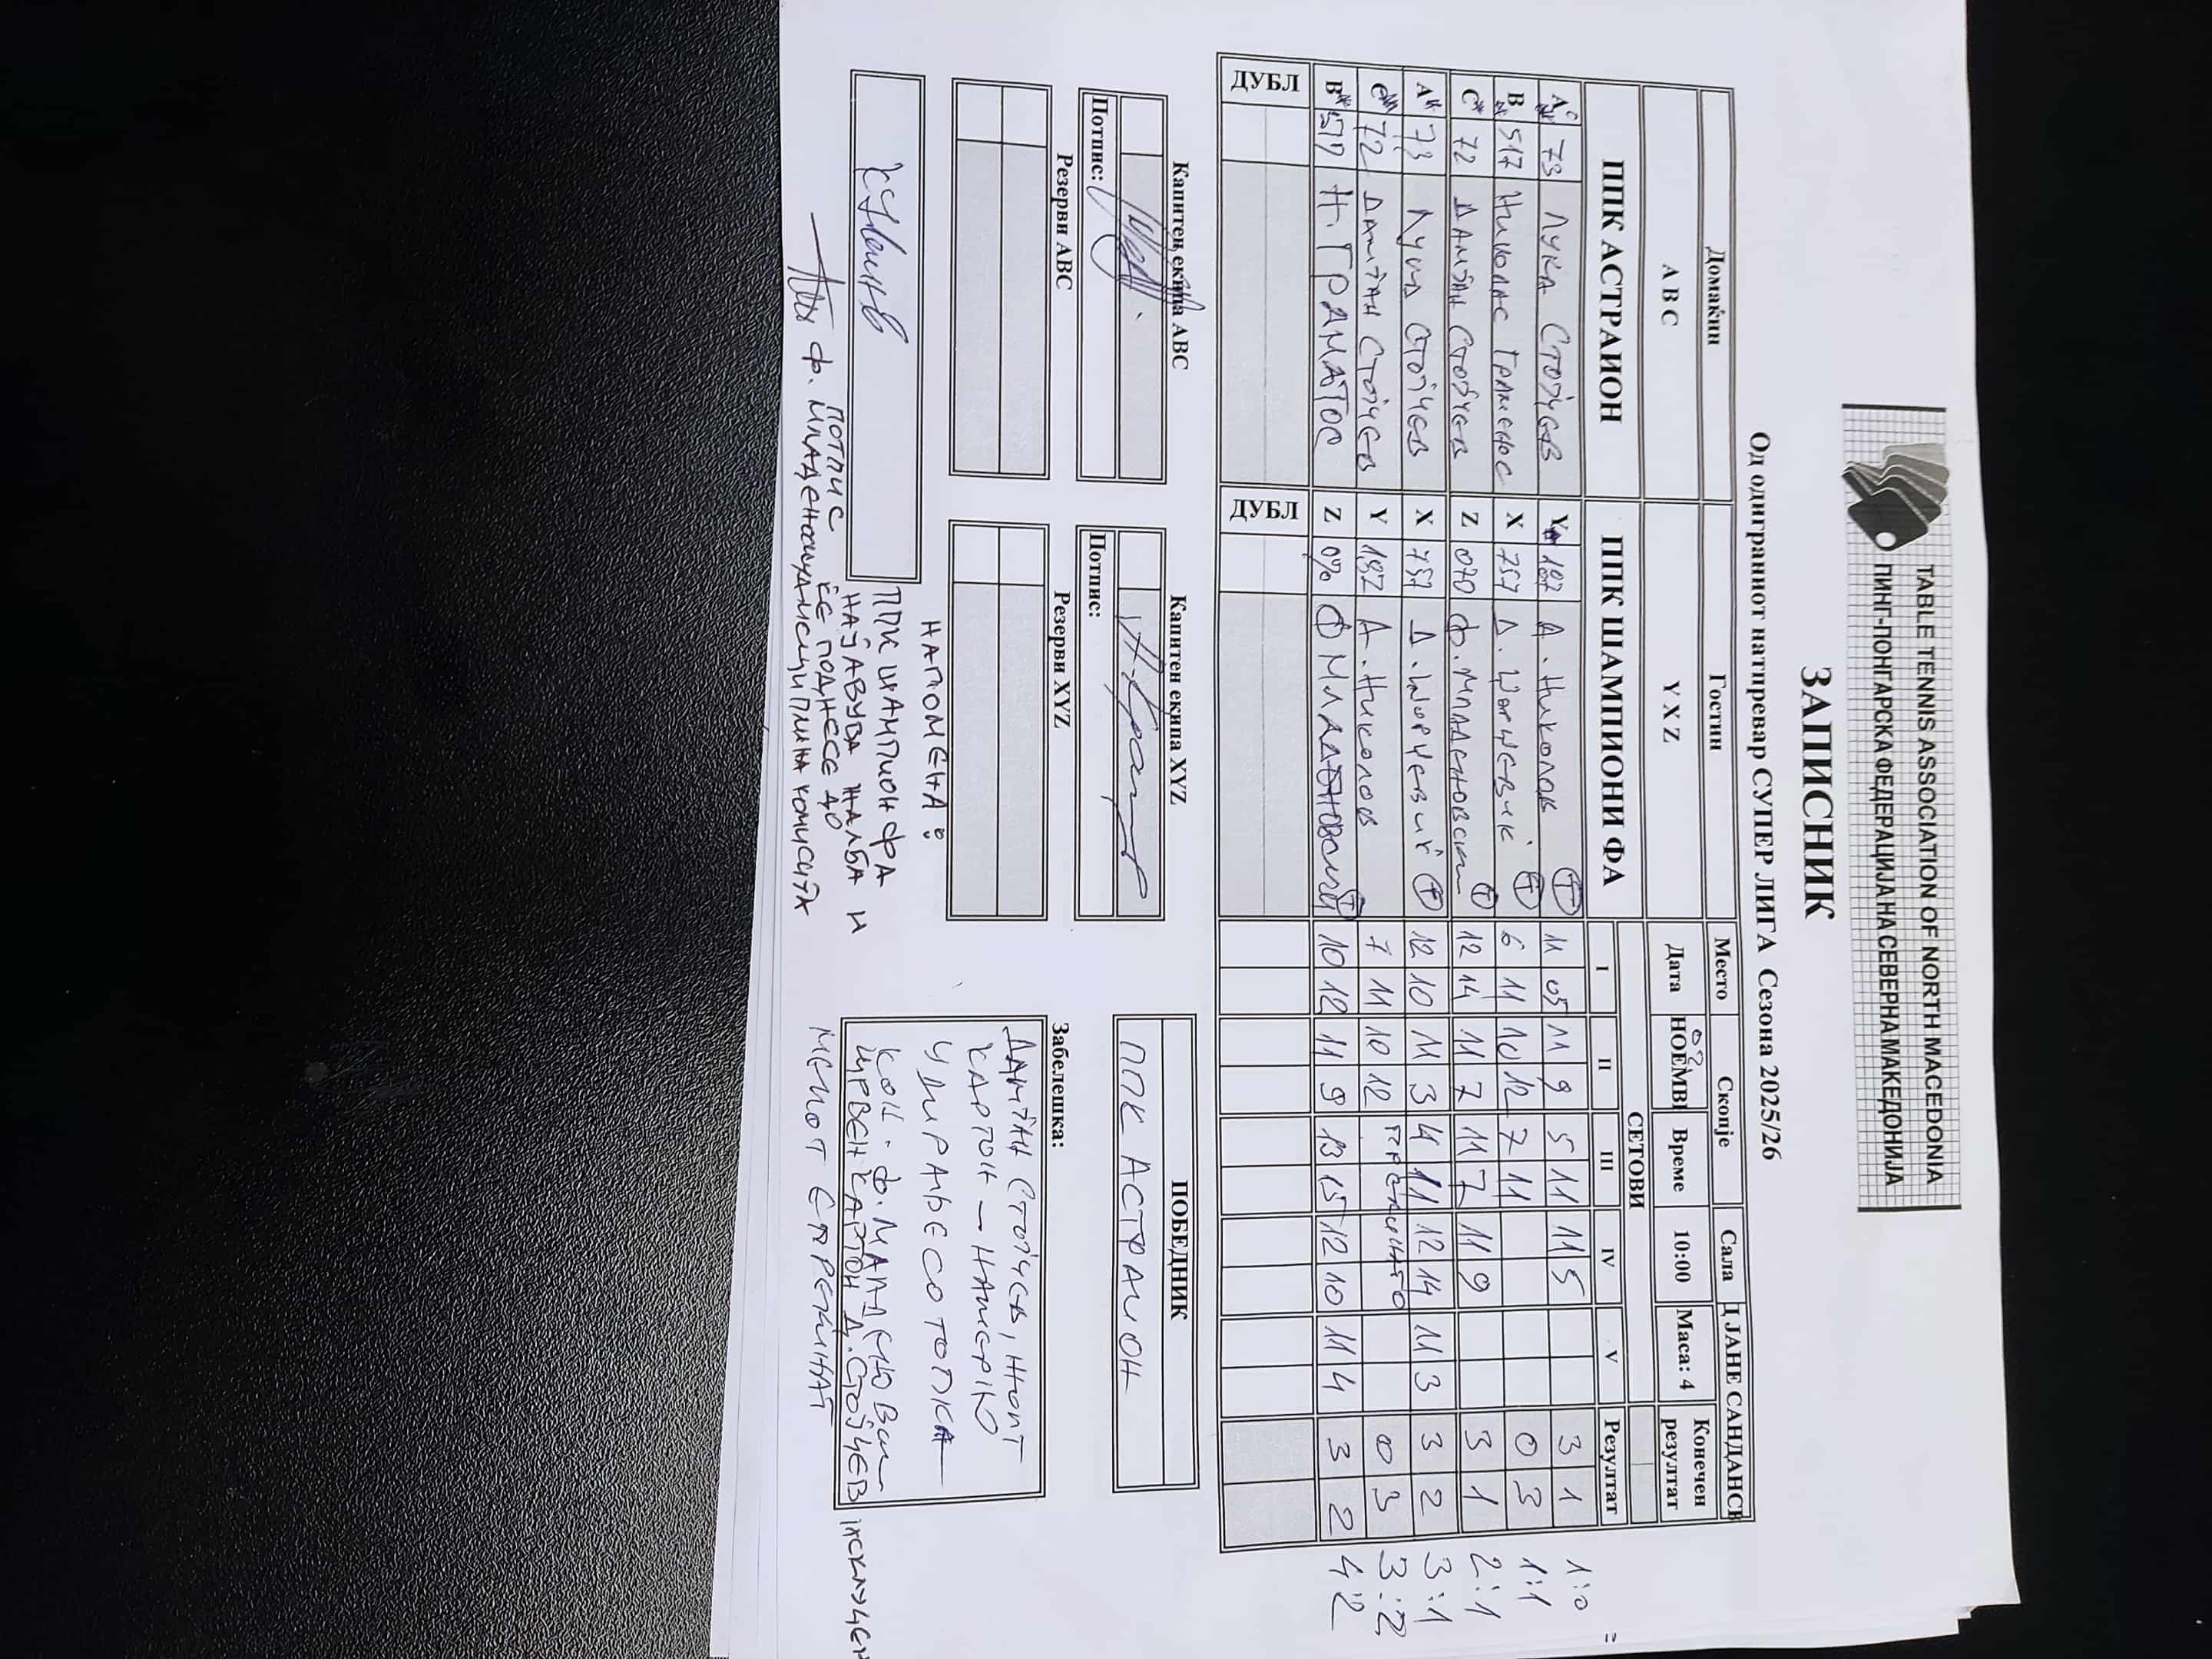 TABLE TENNIS ASSOCIATION OF NORTH MACEDONIA
ПИНГ-ПОНГАРСКА ФЕДЕРАЦИЈА НА СЕВЕРНА МАКЕДОНИЈА
ЗАПИСНИК
Од одиграниот натпревар СУПЕР ЛИГА Сезона 2025/26
Домаќин Гостин Место Скопје Сала Д ЈАНЕ САНДАНСК
A B C Y X Z Дата 02 НОЕМВ Време 10:00 Маса: 4 Конечен резултат
СЕТОВИ
ППК АСТРАИОН ППК ШАМПИОНИ ФА I II III IV V Резултат
A 73 ЛУКА СТОЈЧЕВ Y 187 А. НИКОЛОВ Т 11 05 11 9 5 11 11 5 3 1 1:0
B 517 НИКОЛАС X 757 Д. Т 6 11 10 12 7 11 0 3 1:1
C 72 ДАМЈАН СТОЈЧЕВ Z 070 Ф. МЛАДЕНОВСКИ Т 12 14 11 7 11 7 11 9 3 1 2:1
A 73 ЛУКА СТОЈЧЕВ X 757 Д. Т 12 10 11 3 4 11 12 14 11 3 3 2 3:1
C 72 ДАМЈАН СТОЈЧЕВ Y 187 А. НИКОЛОВ 7 11 10 12 ПРЕКИНАТО 0 3 3:2
B 517 Н. ГРАМАТОС Z Ф МЛАДЕНОВСКИ Т 10 12 11 9 13 15 12 10 11 4 3 2 4:2
ДУБЛ ДУБЛ
Капитен екипа ABC Капитен екипа XYZ ПОБЕДНИК
Потпис: Потпис: ППК АСТРАИОН
Резерви ABC Резерви XYZ Забелешка:
ДАМЈАН СТОЈЧЕВ,
КАРТОН – НАМЕРНО
УДИРАЊЕ СО ТОПКА
КОН Ф. МЛАДЕНОВСКИ
ЦРВЕН КАРТОН Д. СТОЈЧЕВ ИСКЛУЧЕН
МЕЧОТ Е ПРЕКИНАТ
НАПОМЕНА:
ППК ШАМПИОН ФА
НАЈАВУВА ЖАЛБА И
ЌЕ ПОДНЕСЕ ДО
ДИСЦИПЛИНСКА КОМИСИЈА
ПОТПИС
Ф. МЛАДЕНОВСКИ